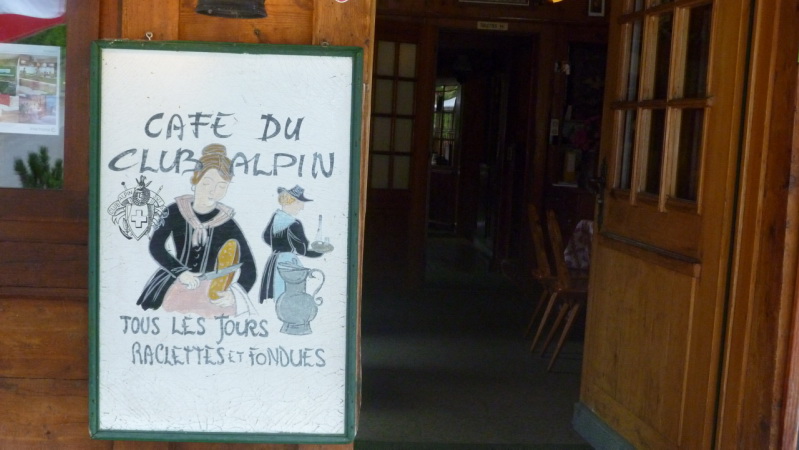 CAFE DU
CLUB ALPIN
TOUS LES JOURS
RACLETTES ET FONDUES